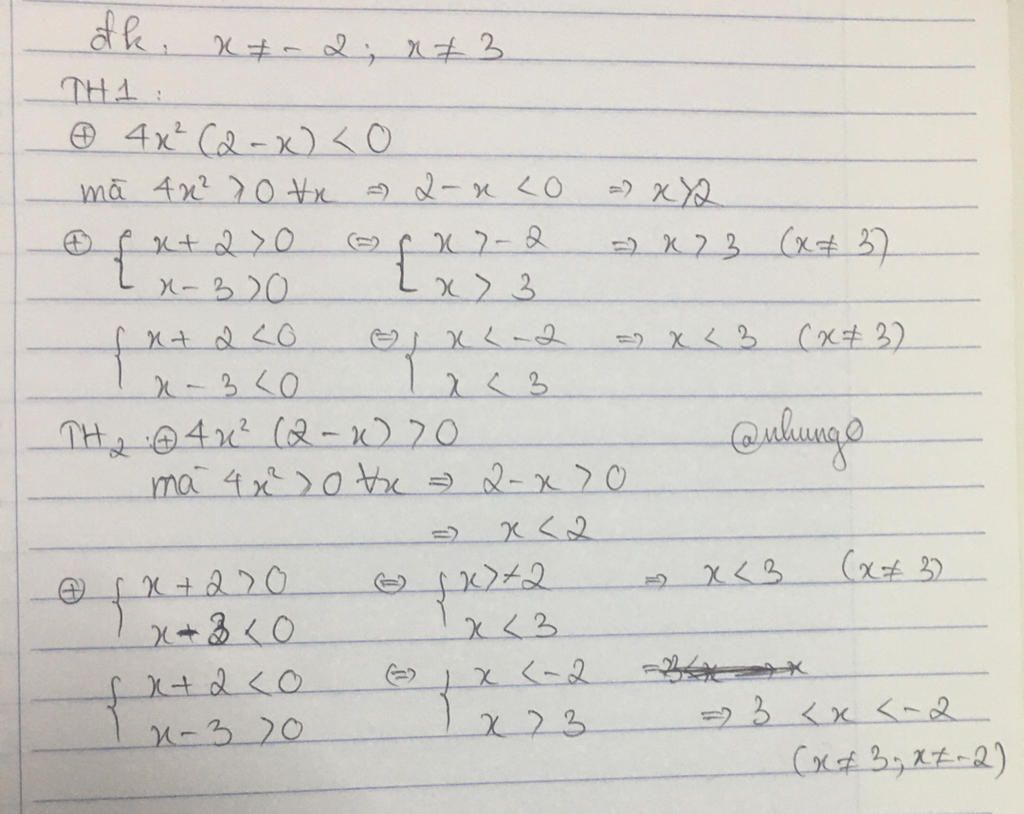 đk: x ≠ -2; x ≠ 3
TH1:
⊕ 4x² (2-x) < 0
mà 4x² > 0 ∀x ⇒ 2-x < 0 ⇒ x > 2
⊕ { x+2 > 0 ⇔ { x > -2 ⇒ x > 3 (x ≠ 3)
x-3 > 0 x > 3
{ x+2 < 0 ⇔ { x < -2 ⇒ x < 3 (x ≠ 3)
x-3 < 0 x < 3
TH2: ⊕ 4x² (2-x) > 0 @nhung0
mà 4x² > 0 ∀x ⇒ 2-x > 0
⇒ x < 2
⊕ { x+2 > 0 ⇔ { x > -2 ⇒ x < 3 (x ≠ 3)
x-3 < 0 x < 3
{ x+2 < 0 ⇔ { x < -2
x-3 > 0 x > 3 ⇒ 3 < x < -2
(x ≠ 3; x ≠ -2)